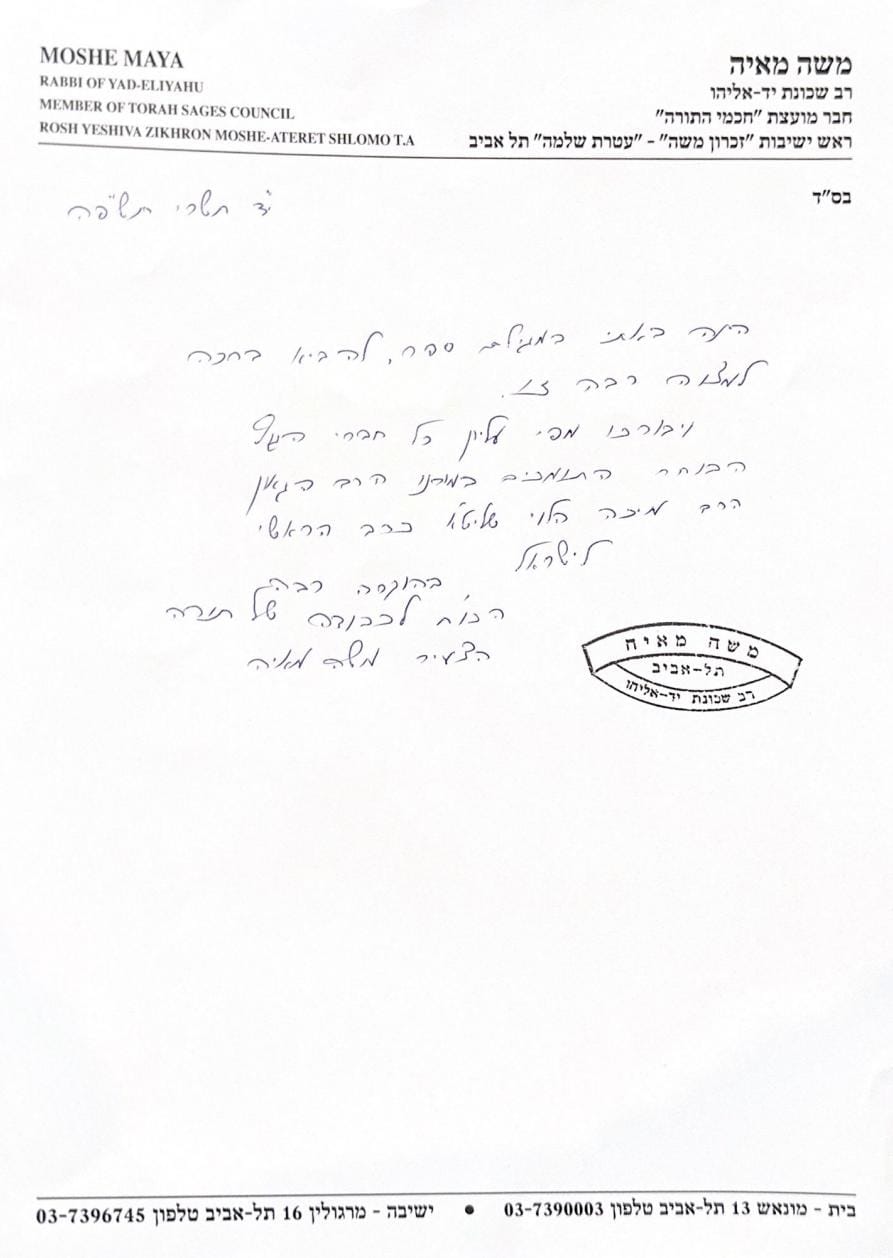 MOSHE MAYA
RABBI OF YAD-ELIYAHU
MEMBER OF TORAH SAGES COUNCIL
ROSH YESHIVA ZIKHRON MOSHE-ATERET SHLOMO T.A
משה מאיה
רב שכונת יד-אליהו
חבר מועצת "חכמי התורה"
ראש ישיבות "זכרון משה" - "עטרת שלמה" תל אביב
בס"ד
י"ד תשרי תשפ"ה
הנה באתי במגילת ספר, להביא ברכה
למצוה רבה זו.
ויבורכו מפי עליון כל חברי הגוף
הבוחר התומכים במורנו הרב הגאון
הרב מיכה הלוי שליט"א כרב הראשי
לישראל
בהוקרה רבה,
הכו"ח לכבודה של תורה
הצעיר משה מאיה
משה מאיה
תל-אביב
רב שכונת יד-אליהו
בית - מונאש 13 תל-אביב טלפון 03-7390003 • ישיבה - מרגולין 16 תל-אביב טלפון 03-7396745